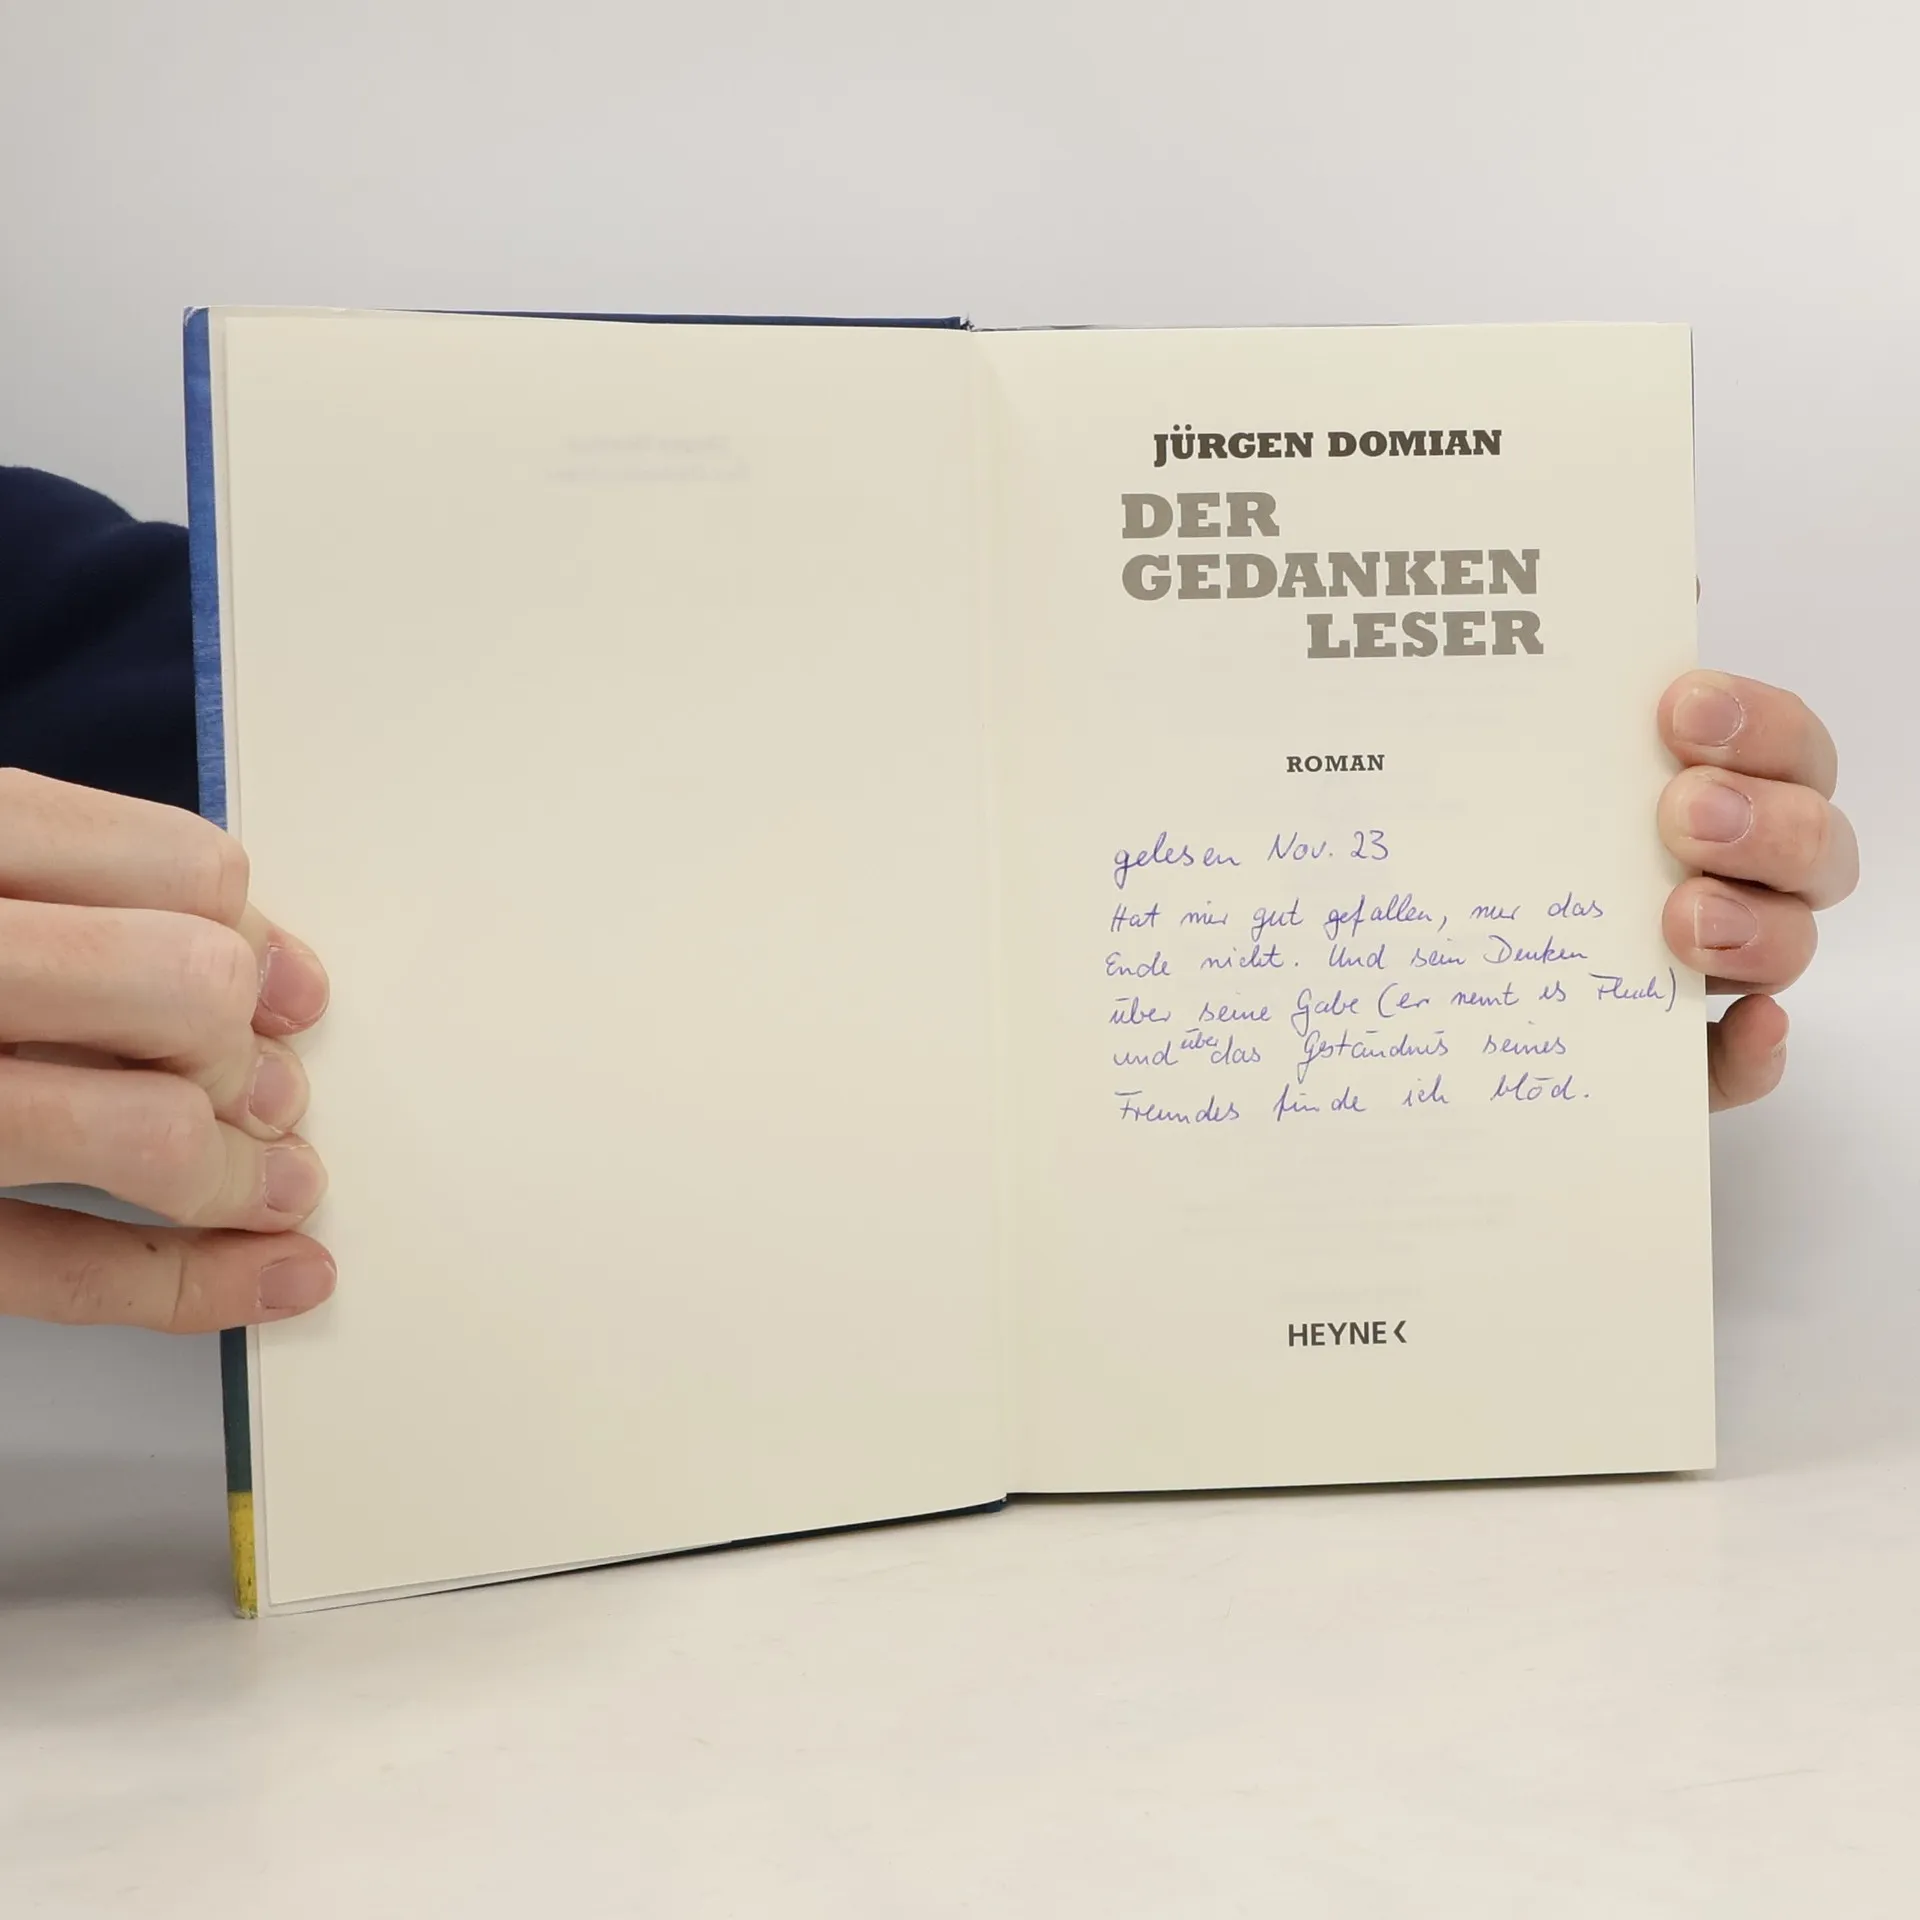 JÜRGEN DOMIAN
DER
GEDANKEN
LESER
ROMAN
gelesen Nov. 23
Hat mir gut gefallen, nur das
Ende nicht. Und sein Denken
über seine Gabe (er nennt es Fluch)
und über das Geständnis seines
Freundes finde ich blöd.
HEYNE<